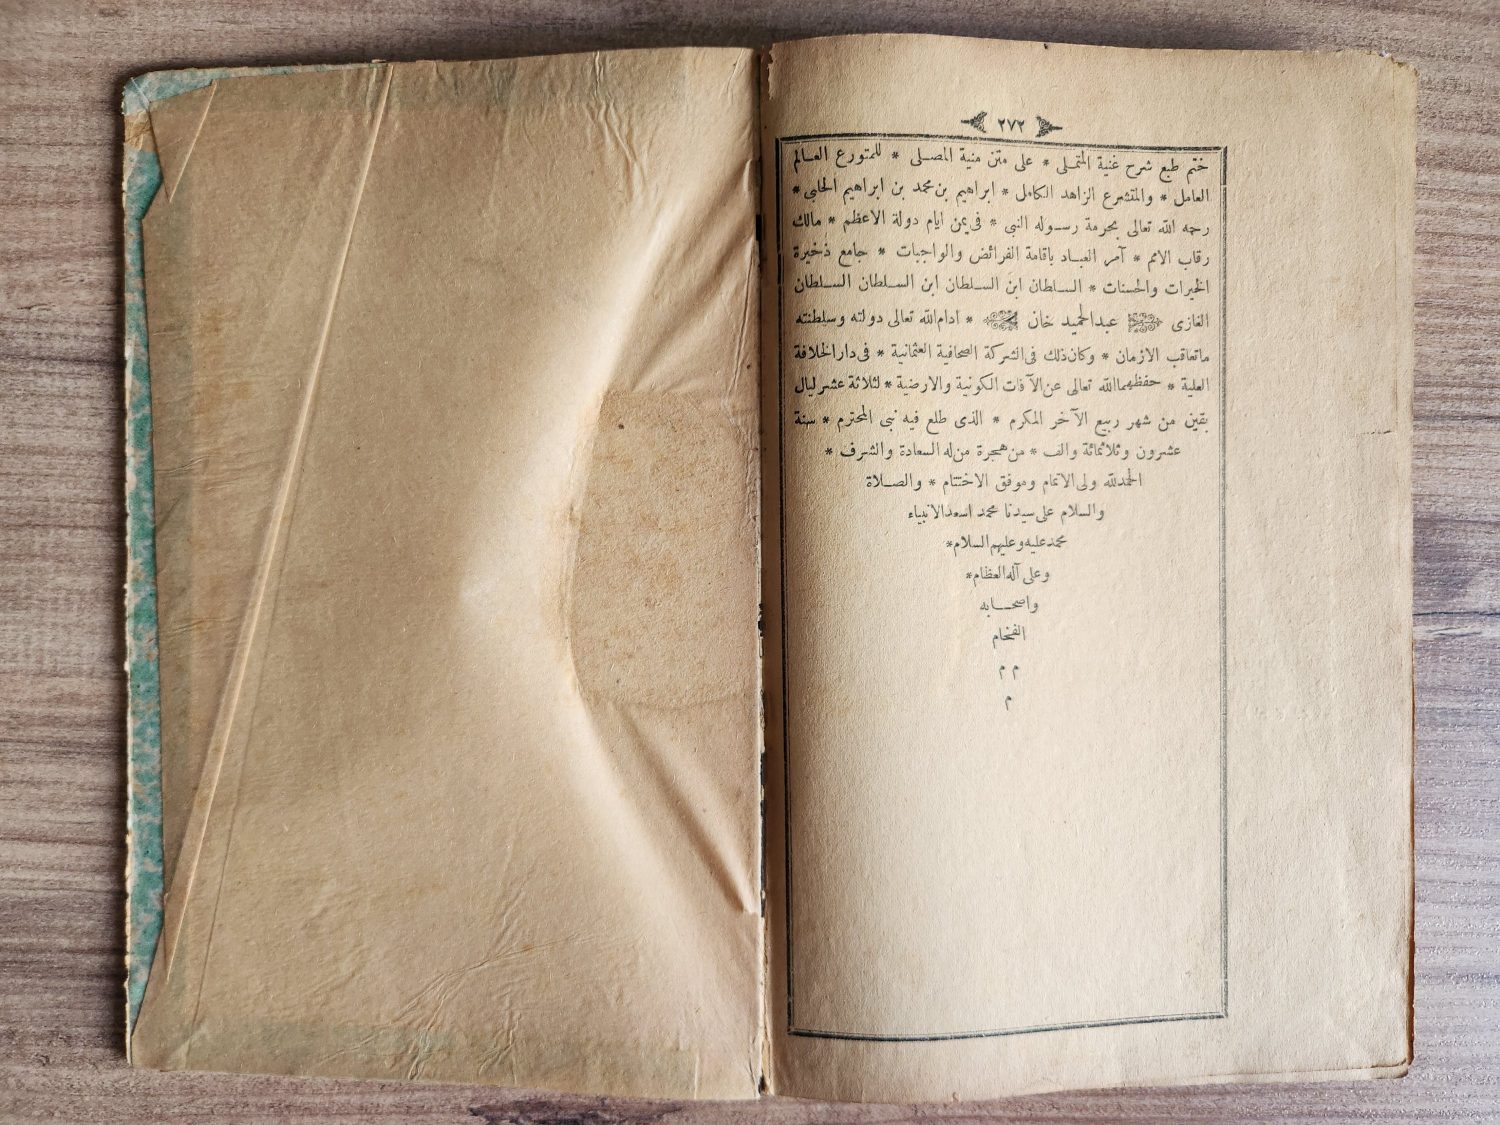 ٢٧٢
ختم طبع شرح غنية المتملى * على متن منية المصلى * للمتورع العالم
العامل * والمتشرع الزاهد الكامل * ابراهيم بن محمد بن ابراهيم الحلبى *
رحمه الله تعالى بحرمة رسوله النبى * فى يمن ايام دولة الاعظم * مالك
رقاب الامم * آمر العباد باقامة الفرائض والواجبات * جامع ذخيرة
الخيرات والحسنات * السلطان ابن السلطان ابن السلطان السلطان
الغازى عبدالحميد خان * ادام الله تعالى دولته وسلطنته
ماتعاقب الازمان * وكان ذلك فى الشركة الصحافية العثمانية * فى دار الخلافة
العلية * حفظهما الله تعالى عن الآفات الكونية والارضية * لثلاثة عشر ليال
بقين من شهر ربيع الآخر المكرم * الذى طلع فيه نبى المحترم * سنة
عشرون وثلاثمائة والف * من هجرة من له السعادة والشرف *
الحمدلله ولى الاتمام وموفق الاختتام * والصلاة
والسلام على سيدنا محمد اسعد الانبياء
محمد عليه وعليهم السلام *
وعلى آله العظام *
واصحابه
الفخام
م م
م